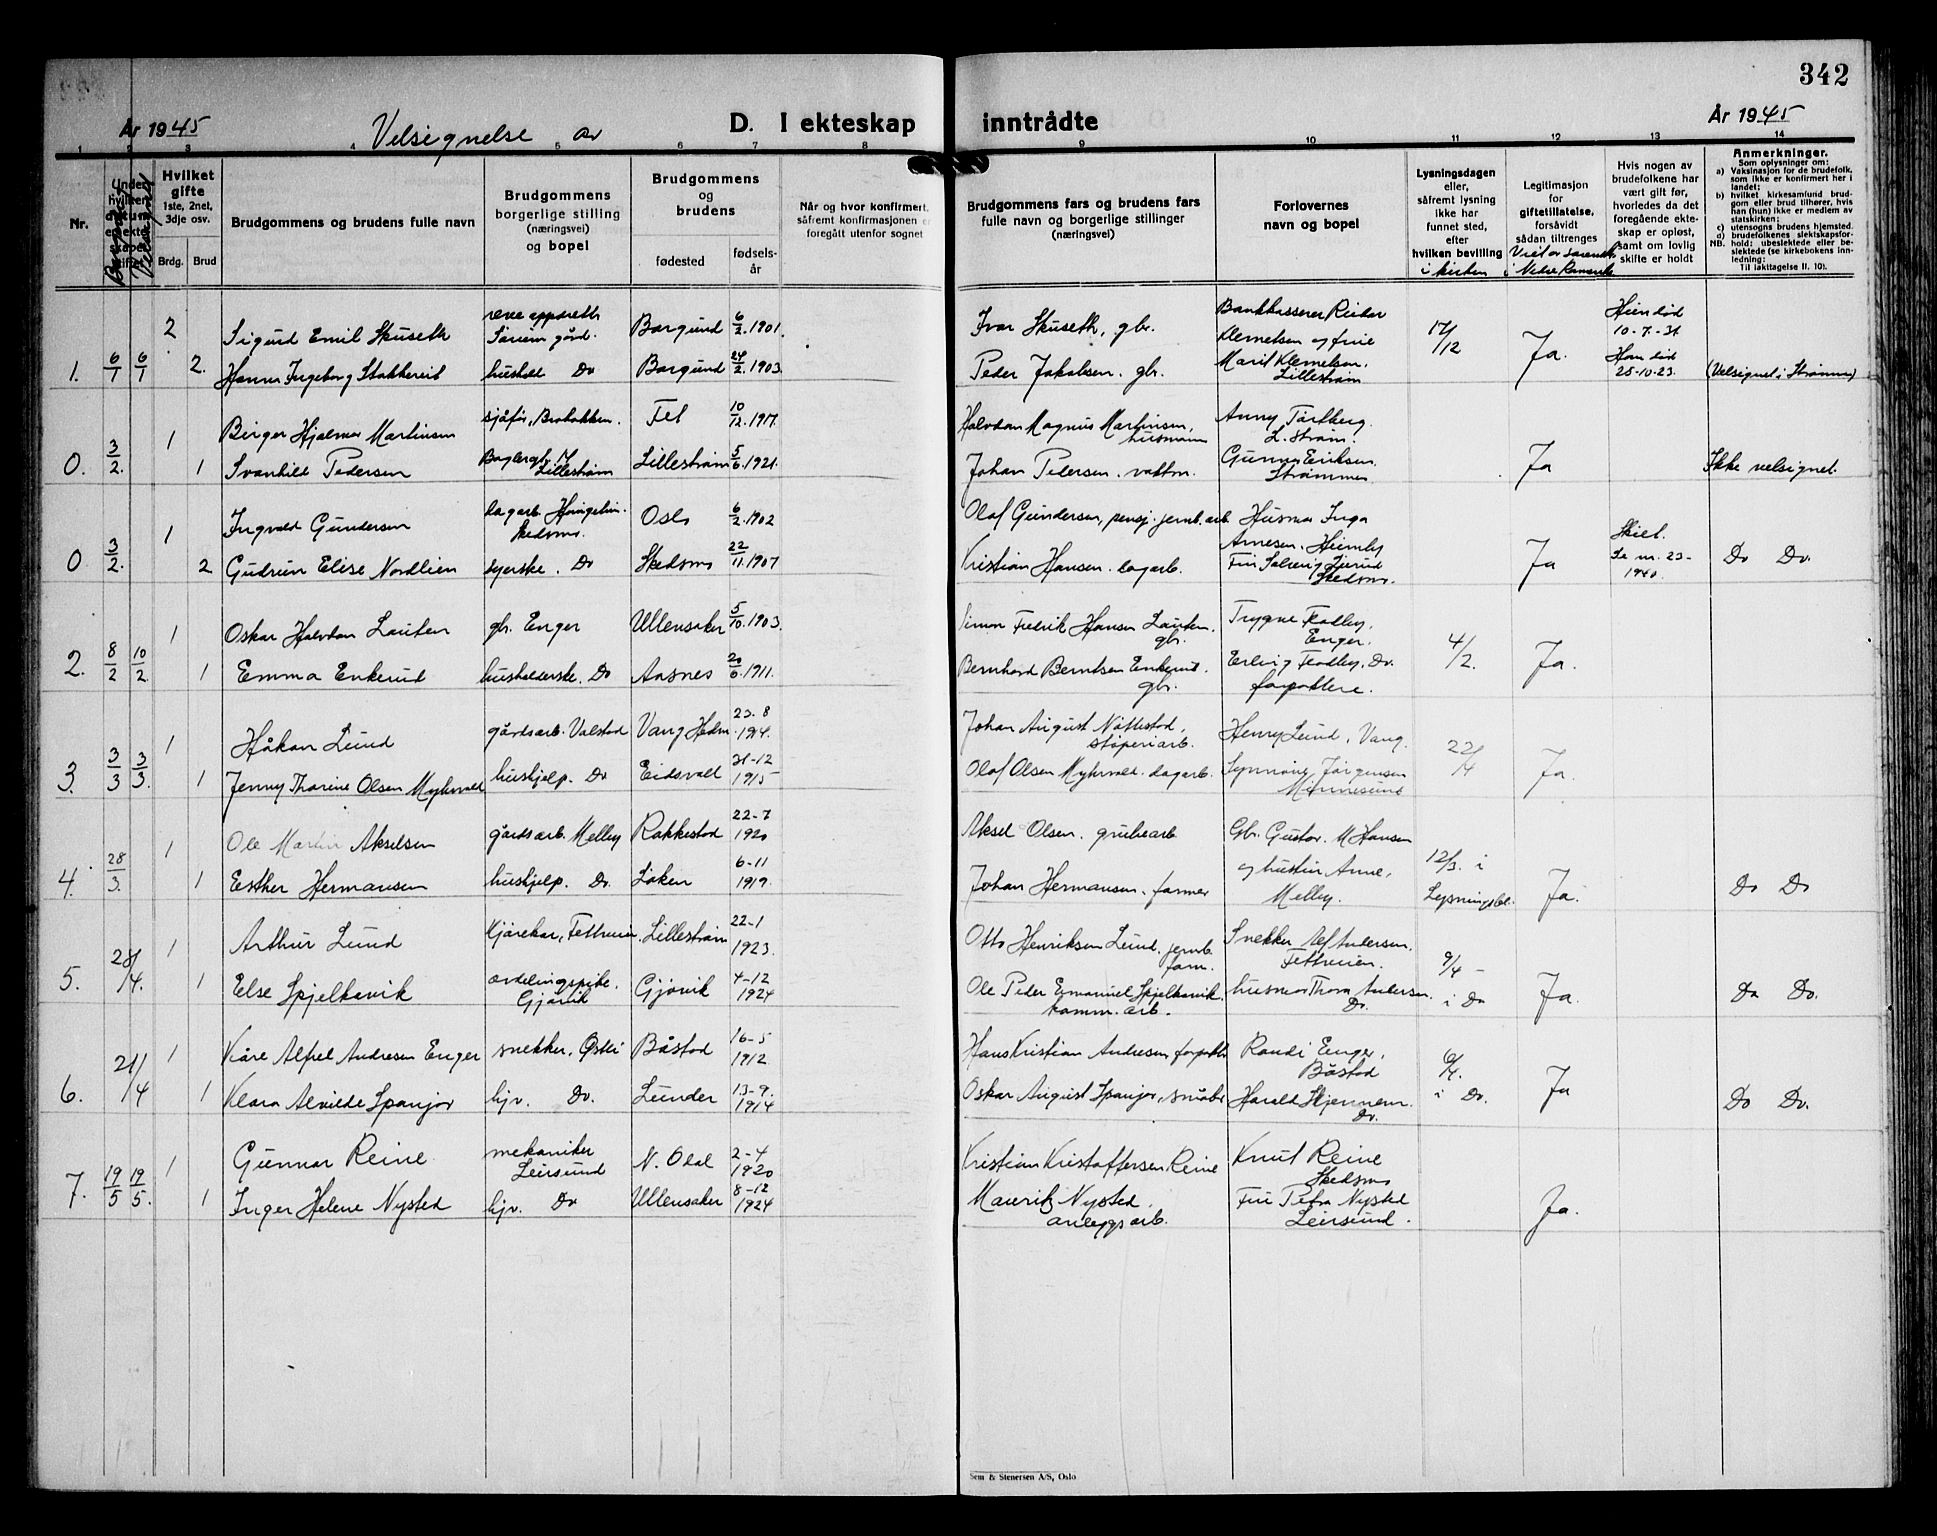 342
År 1945
Velsignelse av
D. I ekteskap inntrådte
År 1945
1 2 3 4 5 6 7 8 9 10 11 12 13 14
Nr.
Under hvilken datum er ekteskapet stiftet
Hvilket gifte
1ste, 2net, 3dje osv.
Brdg. Brud
Brudgommens og brudens fulle navn
Brudgommens borgerlige stilling (næringsvei) og bopel
Brudgommens og brudens
fødested
fødselsår
Når og hvor konfirmert,
såfremt konfirmasjonen er
foregått utenfor sognet
Brudgommens fars og brudens fars
fulle navn og borgerlige stillinger
(næringsvei)
Forlovernes
navn og bopel
Lysningsdagen
eller,
såfremt lysning
ikke har
funnet sted,
efter
hvilken bevilling
i kirken
Legitimasjon
for
giftetillatelse,
forsåvidt
sådan tiltrenges
Hvis nogen av
brudefolkene har
vært gift før,
hvorledes da det
foregående ekte-
skap er opløst,
samt om lovlig
skifte er holdt
Anmerkninger.
Som oplysninger om:
a) Vaksinasjon for de brudefolk,
som ikke er konfirmert her i
landet;
b) hvilket kirkesamfund brud-
gom eller brud tilhører, hvis
han (hun) ikke er medlem av
statskirken;
c) utensogns brudens hjemsted.
d) brudefolkenes slektskapsfor-
NB. hold: ubeslektede eller be-
slektede (se kirkebokens inn-
ledning:
Til iakttagelse II. 10).
1. 6/1 6/1 2 Sigurd Emil Skuseth Sørum gård. Borgund 6/2.1901. Ivar Skuseth, gbr. 17/12 Ja. 10-7-31
2. Hanna Ingeborg Stokkereit hushold Do Borgund 24/2.1903. Peder Jakobsen. gbr. Marit Klemetsen, Lillestrøm 25-10-23. (Velsignet i Strømmen)
0. 3/2. 1 Birger Hjalmar Martinsen sjåfør, Fet 10/12.1917. Halvdan Magnus Martinsen, husmann Anny L.strøm.
1 Svanhild Pedersen Lillestrøm Lillestrøm 5/6.1921. Johan Pedersen. vaktm. Gunnar Eriksen, Strømmen Ja Ikke velsignet.
0 3/2. 1 Ingvald Gundersen dagarb. Skedsmo. Oslo 6/2.1902 Olaf Gundersen, pensj. jernb.arb. Husmor Inga Arnesen, Heimly
2 Gudrun Elise Nordlien syerske. Do Skedsmo 22/11.1907 Kristian Hansen. dagarb. Skedsmo. Ja Skilt. 23- 1940. Do Do.
2. 8/2 10/2. 1 Oskar Halvdan Lauten gbr. Enger Ullensaker 5/10.1903. Simon Fredrik Hansen Lauten. gbr. Trygve Enger. 4/2. Ja.
1 Emma Enkerud husholderske. Do Aasnes 20/6.1911. Bernhard Berntsen Enkerud. gbr. Erling Do. forpaktere.
3. 3/3 3/3. 1 Håkon Lund gårdsarb. Valstad Vang Hedm. 23-8 1914. Johan August Nøttestad, støperiarb. Henry Lund, Vang. Ja.
1 Jenny Thorine Olsen Myhrvold hushjelp. Do Eidsvold 31-12 1915 Olaf Olsen Myhrvold. dagarb. Synnøve Jørgensen Minnesund
4. 28/3. 1 Ole Martin Akselsen gårdsarb. Melby Rakkestad 22-7 1920 Aksel Olsen. grubearb Gbr. Gustav. M Hansen 12/3. i
1 Esther Hermansen hushjelp. Do. Løken 6-11 1919. Johan Hermansen. farmer og hustru Anne, Melby. Lysningsbl. Ja. Do Do
5. 28/4. 1 Arthur Lund Kjørekar, Lillestrøm 22-1 1923. Otto Henriksen Lund. jernb. form. Snekker Alf Andersen. 9/4 -
1 Else Spjelkavik avdelingspike. Gjøvik Gjøvik 4-12 1924 Ole Peder Emanuel Spjelkavik. komm. arb. husmor Thora Andersen. Do. i Do Ja. Do Do.
6. 21/4 1 Kåre Alfred Andresen Enger snekker, Østli Båstad 16-5 1912 Hans Kristian Andresen, forpakter Randi Enger, Båstad 6/4.
1 Klara Alvilde Spanjor hjv. Do. Lunder 13-9. 1914 Oskar August Spanjor, småbr Harald Skjennem. Do. i Do. Ja Do Do.
7. 19/5 19/5. 1 Gunnar Reine mekaniker Leirsund N. Odal 2-4 1920 Kristian Kristoffersen Reine Knut Reine Skedsmo
1 Inger Helene Nysted hjv. Do Ullensaker 8-12 1924 Mauritz Nysted. anleggsarb. Fru Petra Nysted Leirsund. Ja.
Sem & Stenersen A/S, Oslo